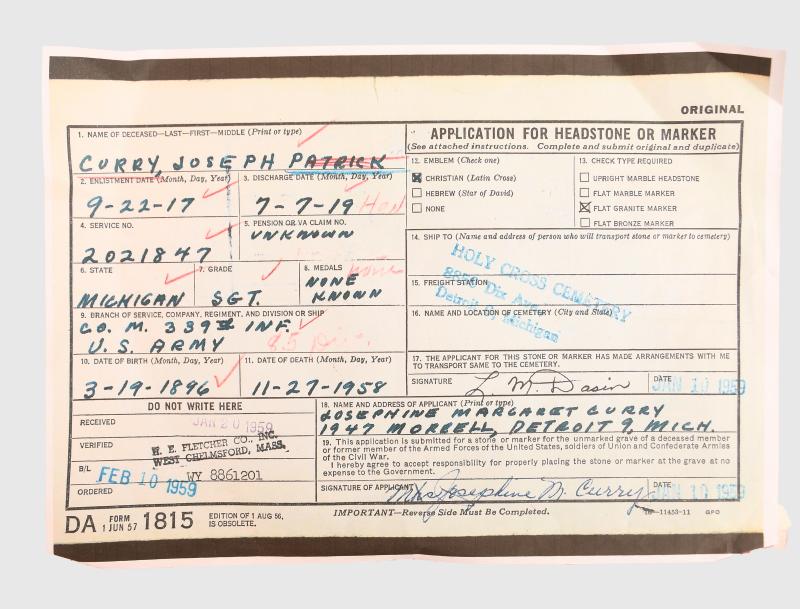 ORIGINAL
APPLICATION FOR HEADSTONE OR MARKER
(See attached instructions. Complete and submit original and duplicate)
1. NAME OF DECEASED—LAST—FIRST—MIDDLE (Print or type)
CURRY, JOSEPH PATRICK
2. ENLISTMENT DATE (Month, Day, Year)
9-22-17
3. DISCHARGE DATE (Month, Day, Year)
7-7-19 Hon
4. SERVICE NO.
2021847
5. PENSION OR VA CLAIM NO.
UNKNOWN
6. STATE
MICHIGAN
7. GRADE
SGT.
8. MEDALS
none
NONE
KNOWN
9. BRANCH OF SERVICE, COMPANY, REGIMENT, AND DIVISION OR SHIP
CO. M. 339 INF.
U.S. ARMY
85 Div.
10. DATE OF BIRTH (Month, Day, Year)
3-19-1896
11. DATE OF DEATH (Month, Day, Year)
11-27-1958
12. EMBLEM (Check one)
CHRISTIAN (Latin Cross)
HEBREW (Star of David)
NONE
13. CHECK TYPE REQUIRED
UPRIGHT MARBLE HEADSTONE
FLAT MARBLE MARKER
FLAT GRANITE MARKER
FLAT BRONZE MARKER
14. SHIP TO (Name and address of person who will transport stone or marker to cemetery)
HOLY CROSS CEMETERY
8850 Dix Avenue
Detroit 9, Michigan
15. FREIGHT STATION
16. NAME AND LOCATION OF CEMETERY (City and State)
17. THE APPLICANT FOR THIS STONE OR MARKER HAS MADE ARRANGEMENTS WITH ME
TO TRANSPORT SAME TO THE CEMETERY.
SIGNATURE
L. M. Dasin
DATE
JAN 10 1959
DO NOT WRITE HERE
RECEIVED
JAN 20 1959
VERIFIED
H. E. FLETCHER CO., INC.
WEST CHELMSFORD, MASS.
B/L
WY 8861201
FEB 10 1959
ORDERED
18. NAME AND ADDRESS OF APPLICANT (Print or type)
JOSEPHINE MARGARET CURRY
1947 MORRELL, DETROIT 9, MICH.
19. This application is submitted for a stone or marker for the unmarked grave of a deceased member
or former member of the Armed Forces of the United States, soldiers of Union and Confederate Armies
of the Civil War.
I hereby agree to accept responsibility for properly placing the stone or marker at the grave at no
expense to the Government.
SIGNATURE OF APPLICANT
Mrs Josephine M. Curry
DATE
JAN 10 1959
DA FORM 1 JUN 57 1815
EDITION OF 1 AUG 56,
IS OBSOLETE.
IMPORTANT—Reverse Side Must Be Completed.
16—11453-11 GPO